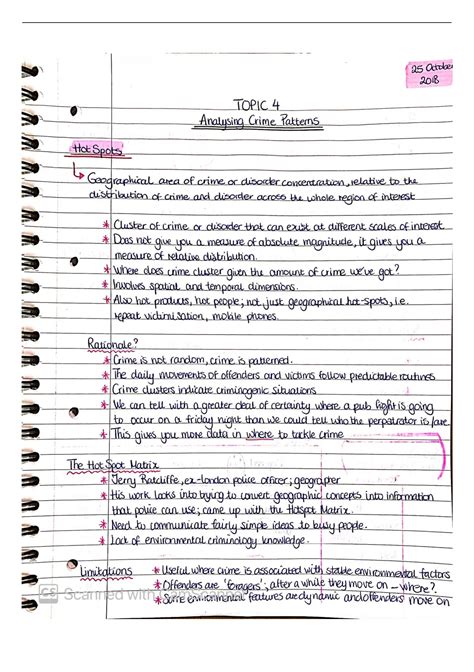 25 October
2018
TOPIC 4
Analysing Crime Patterns
Hot Spots
Geographical area of crime or disorder concentration, relative to the
distribution of crime and disorder across the whole region of interest
* Cluster of crime or disorder that can exist at different scales of interest.
* Does not give you a measure of absolute magnitude, it gives you a
measure of relative distribution.
* Where does crime cluster given the amount of crime we've got?
* Involves spatial and temporal dimensions.
* Also hot products, hot people; not just geographical hot-spots, i.e.
repeat victimisation, mobile phones.
Rationale?
* Crime is not random, crime is patterned.
* The daily movements of offenders and victims follow predictable routines
* Crime clusters indicate criminogenic situations
* We can tell with a greater deal of certainty where a pub fight is going
to occur on a friday night than we could tell who the perpetrator is/are
* This gives you more data in where to tackle crime
The Hot Spot Matrix
* Jerry Ratcliffe, ex-london police officer; geographer
* His work looks into trying to convert geographic concepts into information
that police can use; came up with the Hotspot Matrix.
* Need to communicate fairly simple ideas to busy people.
* Lack of environmental criminology knowledge.
Limitations * Useful where crime is associated with stable environmental factors
* Offenders are 'foragers'; after a while they move on - where?
* Some environmental features are dynamic and offenders move on
CS Scanned with CamScanner